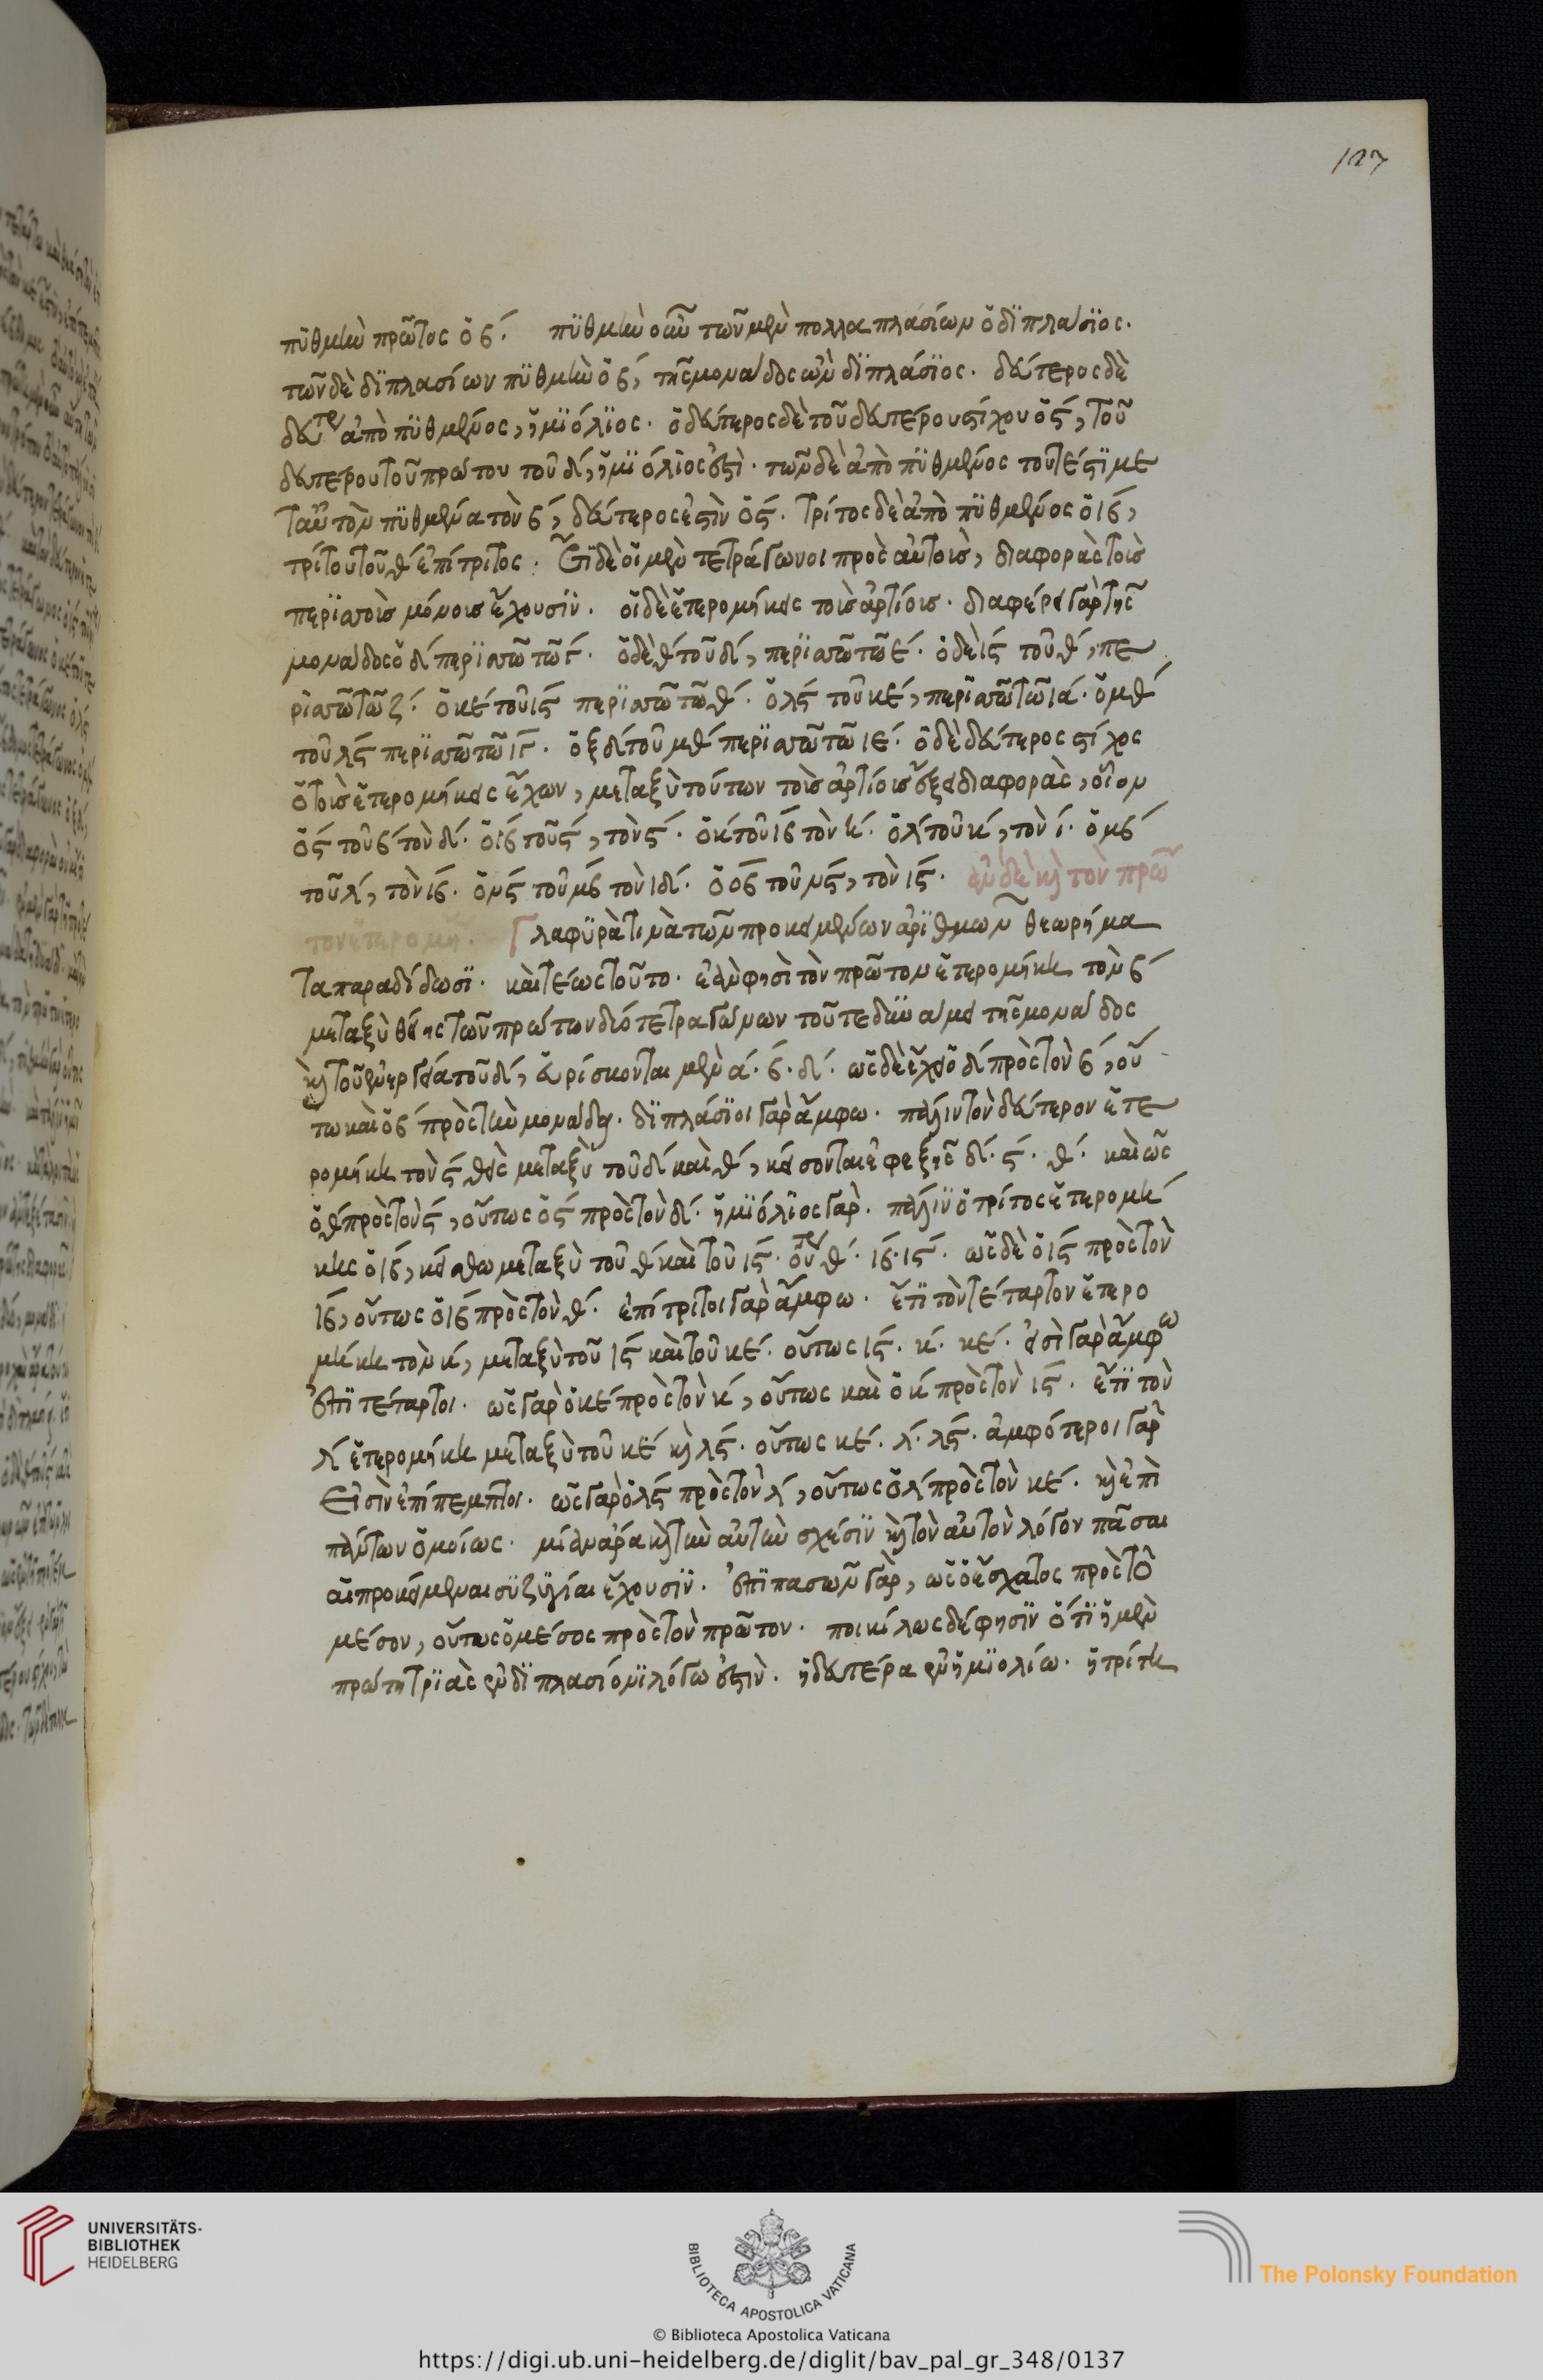 127
πϋθμὴν πρῶτος ὁ β΄. πϋθμὴν οὖν τῶν μὲν πολλαπλασίων ὁ διπλάσϊος.
τῶν δὲ διπλασίων πϋθμὴν ὁ β΄, τῆς μονάδος ὢν διπλάσϊος. δεύτερος δὲ
ἀπὸ πϋθμένος, ἡμϊόλϊος. ὁ δεύτερος δὲ τοῦ δευτέρου στίχου ὁ ϛ΄, τοῦ
δευτέρου τοῦ πρώτου τοῦ δ΄, ἡμϊόλϊος ἐστὶ. τῶν δὲ ἀπὸ πϋθμένος τουτέστϊ με
τὰ τὸν πϋθμένα τὸν β΄, δεύτερος ἐστὶν ὁ ϛ΄. τρίτος δὲ ἀπὸ πϋθμένος ὁ ιβ΄,
τρίτου τοῦ θ΄ ἐπίτριτος. Ἔτϊ δὲ οἱ μὲν τετράγωνοι πρὸς αὐτοὺς, διαφορὰς τοῖς
περϊττοῖς μόνοις ἔχουσϊν. οἱ δὲ ἑτερομήκεις τοῖς ἀρτίοις. διαφέρει γὰρ τῆς
μονάδος ὁ δ΄ περϊττῷ τῷ γ΄. ὁ δὲ θ΄ τοῦ δ΄, περϊττῷ τῷ ε΄. ὁ δὲ ιϛ΄ τοῦ θ΄, πε
ρϊττῷ τῷ ζ΄. ὁ κε΄ τοῦ ιϛ΄ περϊττῷ τῷ θ΄. ὁ λϛ΄ τοῦ κε΄, περϊττῷ τῷ ια΄. ὁ μθ΄
τοῦ λϛ΄ περϊττῷ τῷ ιγ΄. ὁ ξδ΄ τοῦ μθ΄ περϊττῷ τῷ ιε΄. ὁ δὲ δεύτερος στίχος
ὁ τοὺς ἑτερομήκεις ἔχων, μεταξὺ τούτων τοῖς ἀρτίοις ἕξει διαφορὰς, οἷον
ὁ ϛ΄ τοῦ β΄ τὸν δ΄. ὁ ιβ΄ τοῦ ϛ΄, τὸν ϛ΄. ὁ κ΄ τοῦ ιβ΄ τὸν η΄. ὁ λ΄ τοῦ κ΄, τὸν ι΄. ὁ μβ΄
τοῦ λ΄, τὸν ιβ΄. ὁ νϛ΄ τοῦ μβ΄ τὸν ιδ΄. ὁ οβ΄ τοῦ νϛ΄, τὸν ιϛ΄. ἐὰν δὲ καὶ τὸν πρῶ
τον ἑτερομή. Γλαφϋρὰ τινὰ τῶν προκειμένων ἀρϊθμῶν θεωρήμα
τα παραδίδωσϊ. καὶ τέως τοῦτο. ἐὰν φησὶ τὸν πρῶτον ἑτερομήκη τὸν β΄
μεταξὺ θείης τῶν πρώτων δύο τετραγώνων τοῦ τε δυνάμει τῆς μονάδος
καὶ τοῦ ἐνεργείᾳ τοῦ δ΄, εὑρίσκονται μὲν α΄. β΄. δ΄. ὡς δὲ ἔχει ὁ δ΄ πρὸς τὸν β΄, οὕ
τω καὶ ὁ β΄ πρὸς τὴν μονάδα. διπλάσϊοι γὰρ ἄμφω. πάλιν τὸν δεύτερον ἑτε
ρομήκη τὸν ϛ΄ θεὶς μεταξὺ τοῦ δ΄ καὶ θ΄, κείσονται ἐφεξῆς δ΄. ϛ΄. θ΄. καὶ ὡς
ὁ θ΄ πρὸς τὸν ϛ΄, οὕτως ὁ ϛ΄ πρὸς τὸν δ΄. ἡμϊόλϊος γὰρ. πάλϊν ὁ τρίτος ἑτερομή
κης ὁ ιβ΄, κείσθω μεταξὺ τοῦ θ΄ καὶ τοῦ ιϛ΄. οὕτω θ΄. ιβ΄. ιϛ΄. ὡς δὲ ὁ ιϛ΄ πρὸς τὸν
ιβ΄, οὕτως ὁ ιβ΄ πρὸς τὸν θ΄. ἐπίτριτοι γὰρ ἄμφω. ἔτϊ τὸν τέταρτον ἑτερο
μήκη τὸν κ΄, μεταξὺ τοῦ ιϛ΄ καὶ τοῦ κε΄. οὕτως ιϛ΄. κ΄. κε΄. εἰσὶ γὰρ ἄμφω
ἐπϊτέταρτοι. ὡς γὰρ ὁ κε΄ πρὸς τὸν κ΄, οὕτως καὶ ὁ κ΄ πρὸς τὸν ιϛ΄. ἔτϊ τὸν
λ΄ ἑτερομήκη μεταξὺ τοῦ κε΄ καὶ λϛ΄. οὕτως κε΄. λ΄. λϛ΄. ἀμφότεροι γὰρ
εἰσὶν ἐπίπεμπτοι. ὡς γὰρ ὁ λϛ΄ πρὸς τὸν λ΄, οὕτως ὁ λ΄ πρὸς τὸν κε΄. καὶ ἐπὶ
πάντων ὁμοίως. μίαν ἄρα καὶ τὴν αὐτὴν σχέσϊν καὶ τὸν αὐτὸν λόγον πᾶσαι
αἱ προκείμεναι σϋζϋγίαι ἔχουσϊν. ἐπϊ πασῶν γὰρ, ὡς ὁ ἔσχατος πρὸς τὸ
μέσον, οὕτως ὁ μέσος πρὸς τὸν πρῶτον. ποικίλως δέ φησϊν ὅτϊ ἡ μὲν
πρώτη τρϊὰς ἐν διπλασίονϊ λόγω ἐστὶν. ἡ δευτέρα ἐν ἡμϊολίω. ἡ τρίτη
UNIVERSITÄTS-
BIBLIOTHEK
HEIDELBERG
BIBLIOTECA APOSTOLICA VATICANA
The Polonsky Foundation
© Biblioteca Apostolica Vaticana
https://digi.ub.uni-heidelberg.de/diglit/bav_pal_gr_348/0137